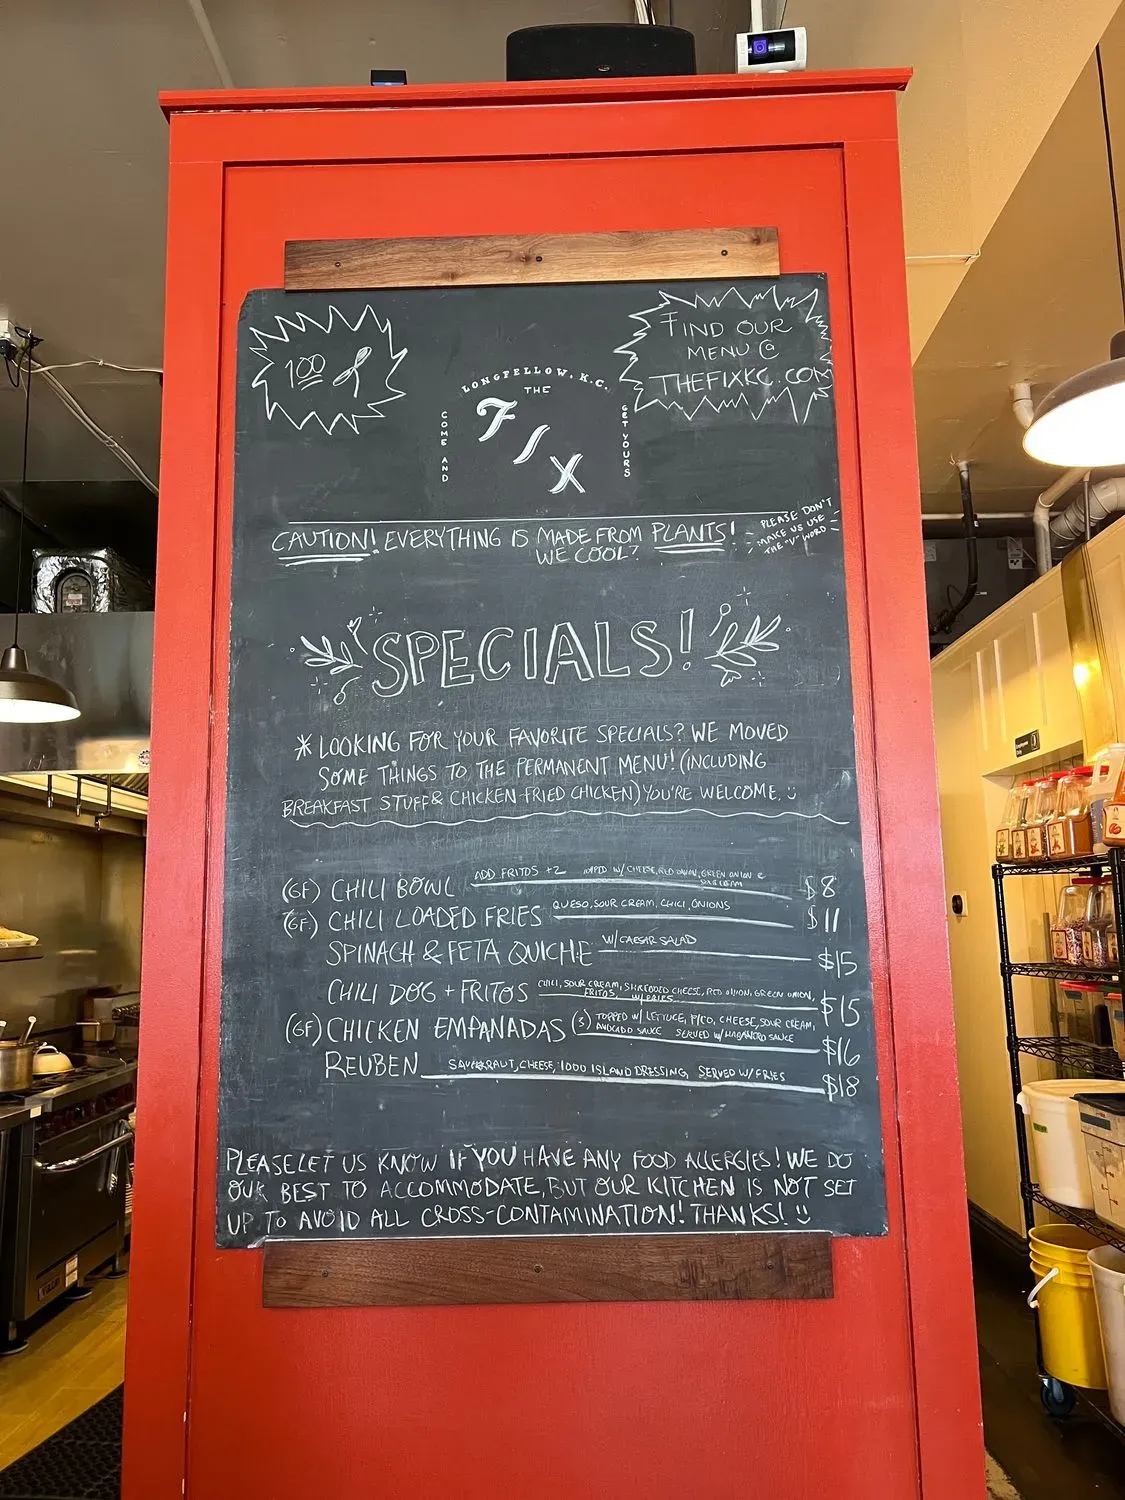 100
FIND OUR
MENU @
THEFIXKC.COM
LONGFELLOW, K.C.
THE
COME AND
FIX
GET YOURS
CAUTION! EVERYTHING IS MADE FROM PLANTS!
WE COOL?
PLEASE DON'T
MAKE US USE
THE "V" WORD
SPECIALS!
* LOOKING FOR YOUR FAVORITE SPECIALS? WE MOVED
SOME THINGS TO THE PERMANENT MENU! (INCLUDING
BREAKFAST STUFF & CHICKEN FRIED CHICKEN) YOU'RE WELCOME.
(GF) CHILI BOWL ADD FRITOS +2 TOPPED W/ CHEESE, RED ONION, GREEN ONION & $8
SOUR CREAM
(GF) CHILI LOADED FRIES QUESO, SOUR CREAM, CHILI, ONIONS $11
SPINACH & FETA QUICHE W/ CAESAR SALAD $15
CHILI DOG + FRITOS CHILI, SOUR CREAM, SHREDDED CHEESE, RED ONION, GREEN ONION, $15
FRITOS, W/ FRIES
(GF) CHICKEN EMPANADAS (3) TOPPED W/ LETTUCE, PICO, CHEESE, SOUR CREAM, $16
AVOCADO SAUCE SERVED W/ HABANERO SAUCE
REUBEN SAUERKRAUT, CHEESE, 1000 ISLAND DRESSING, SERVED W/ FRIES $18
PLEASE LET US KNOW IF YOU HAVE ANY FOOD ALLERGIES! WE DO
OUR BEST TO ACCOMMODATE, BUT OUR KITCHEN IS NOT SET
UP TO AVOID ALL CROSS-CONTAMINATION! THANKS!
VULCAN